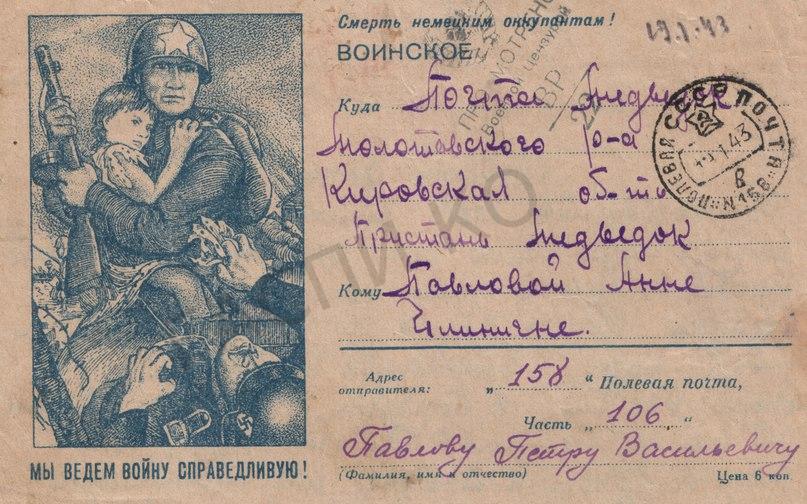 Смерть немецким оккупантам!
19.1.43
ВОИНСКОЕ
ПРОСМОТРЕНО
Военной Цензурой
Куда Почта Медведок
Молотовского р-а
Кировская об-ть
Пристань Медведок
Кому Павловой Анне
СССР ПОЧТА
1.43
В
ПОЛЕВАЯ
Адрес отправителя: „ 158 “ Полевая почта,
Часть „ 106 “
Павлову Петру Васильевичу
(Фамилия, имя и отчество) Цена 6 коп.
МЫ ВЕДЕМ ВОЙНУ СПРАВЕДЛИВУЮ!